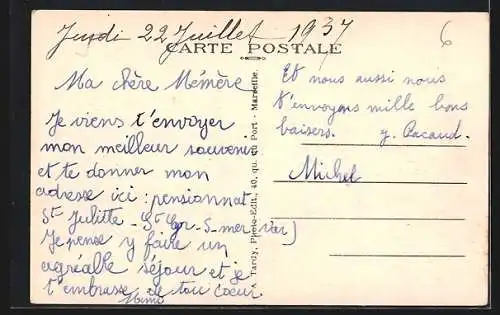 Jeudi 22 Juillet 1937
6
CARTE POSTALE
Ma chère Mémère
Je viens t'envoyer
mon meilleur souvenir
et te donner mon
adresse ici : pensionnat
St Julitte - St Cyr - S - mer (var)
Je pense y faire un
agréable séjour et je
t'embrasse de tout coeur.
Mimo
Tardy, Photo-Edit., 40, qu. du Port - Marseille.
Et nous aussi nous
t'envoyons mille bons
baisers. y. Pacaud.
Michel